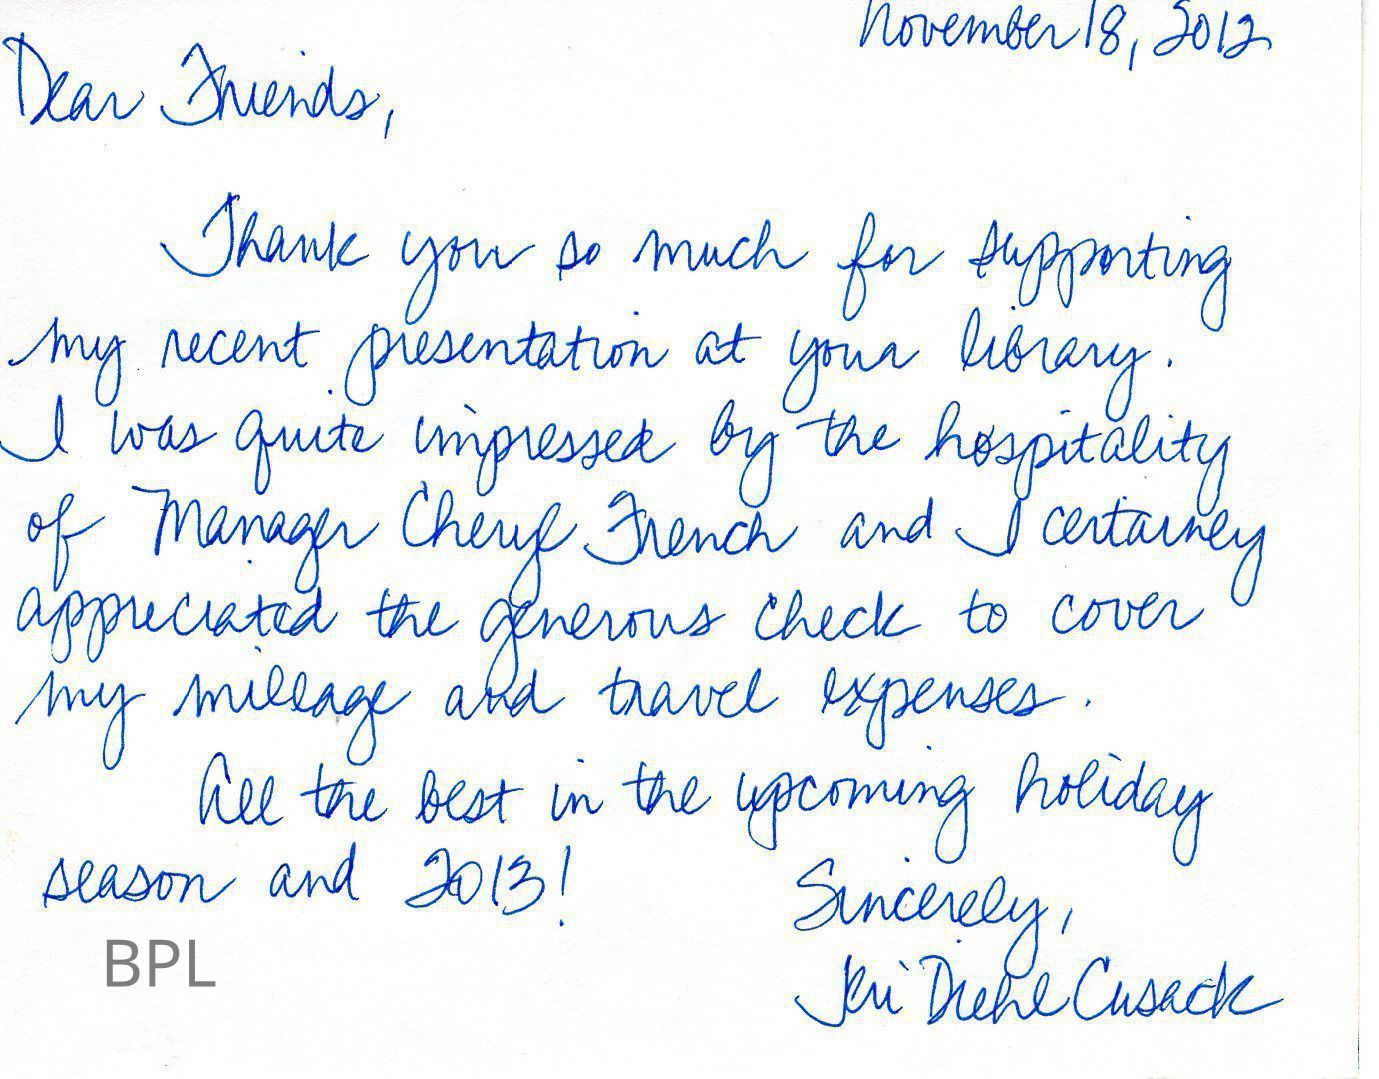 November 18, 2012
Dear Friends,
Thank you so much for supporting
my recent presentation at your library.
I was quite impressed by the hospitality
of Manager Cheryl French and I certainly
appreciated the generous check to cover
my mileage and travel expenses.
All the best in the upcoming holiday
season and 2013!
Sincerely,
BPL
Jeri Diehl Cusack